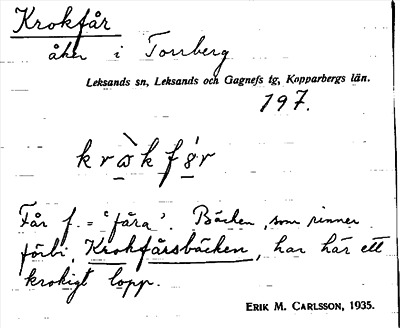 Krokfår
åker i Torrberg
Leksands sn, Leksands och Gagnefs tg, Kopparbergs län.
197.
krɷ̀kfɷ́r
Får f. = 'fåra'. Bäcken, som rinner
förbi, Krokfårsbäcken, har här ett
krokigt lopp.
ERIK M. CARLSSON, 1935.